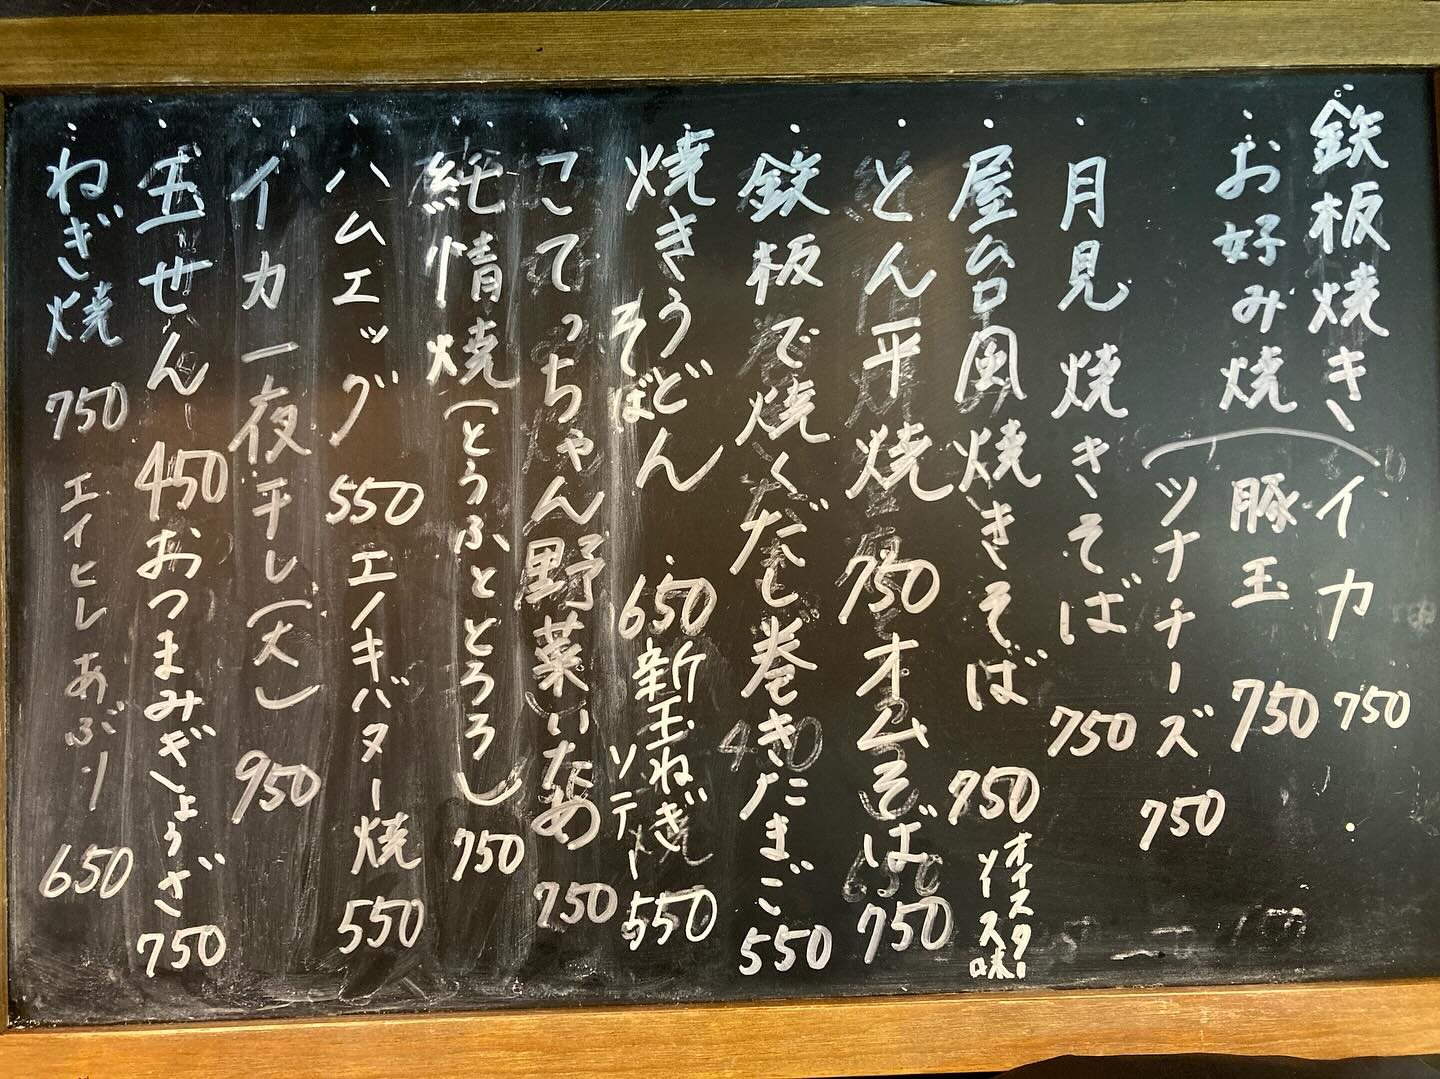 鉄板焼き
・お好み焼(イカ 750
豚玉 750
ツナチーズ 750)
・月見焼きそば 750
・屋台風焼きそば 750 オイスターソース味
・とん平焼 750 オムそば 750
・鉄板で焼くだし巻きたまご 550
・焼きうどん そば ・650 新玉ねぎソテー 550
・こてっちゃん野菜いため 750
・純情焼(とうふととろろ) 750
・ハムエッグ 550 エノキバター焼 550
・イカ一夜干し(大) 950
・玉せん 450 おつまみぎょうざ 750
・ねぎ焼 750 エイヒレあぶり 650